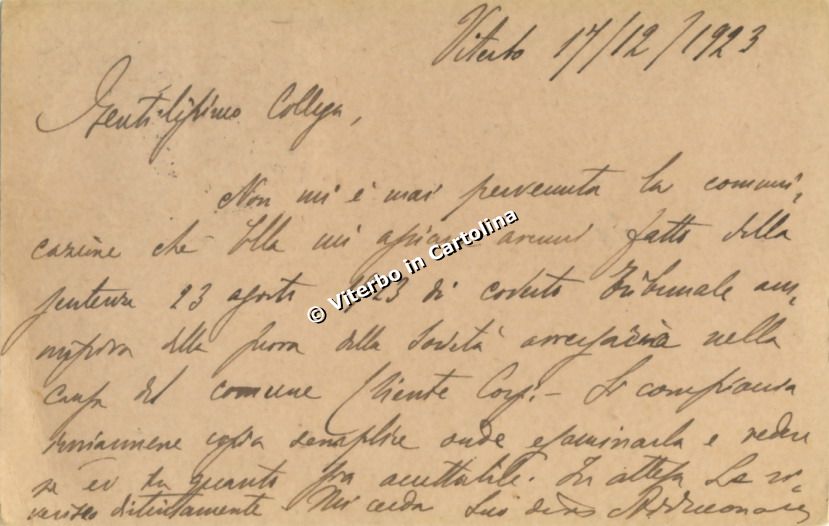 Viterbo 17/12/1923
Gentilissimo Collega,
Non mi è mai pervenuta la comuni-
cazione che Ella mi avermi fatto della
sentenza 23 agosto 1923 di codesto Tribunale am-
della prova della Società nella
causa del comune cliente Corp. - Si compiaccia
inviarmene copia semplice onde esaminarla e vedere
se ed in quanto sia accettabile. In attesa La ri-
verisco distintamente Mi creda Suo dev.
© Viterbo in Cartolina